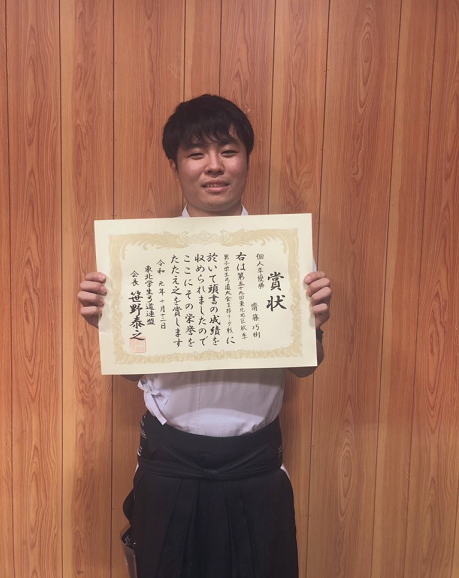 賞状
個人準優勝
齋藤巧樹
右は第五十九回東北地区学生
男子学生弓道大会王座リーグ戦に
於いて頭書の成績を
収められましたので
ここにその栄誉を
たたえ之を賞します
令和元年十月十二日
東北学生弓道連盟
会長 笹野泰之